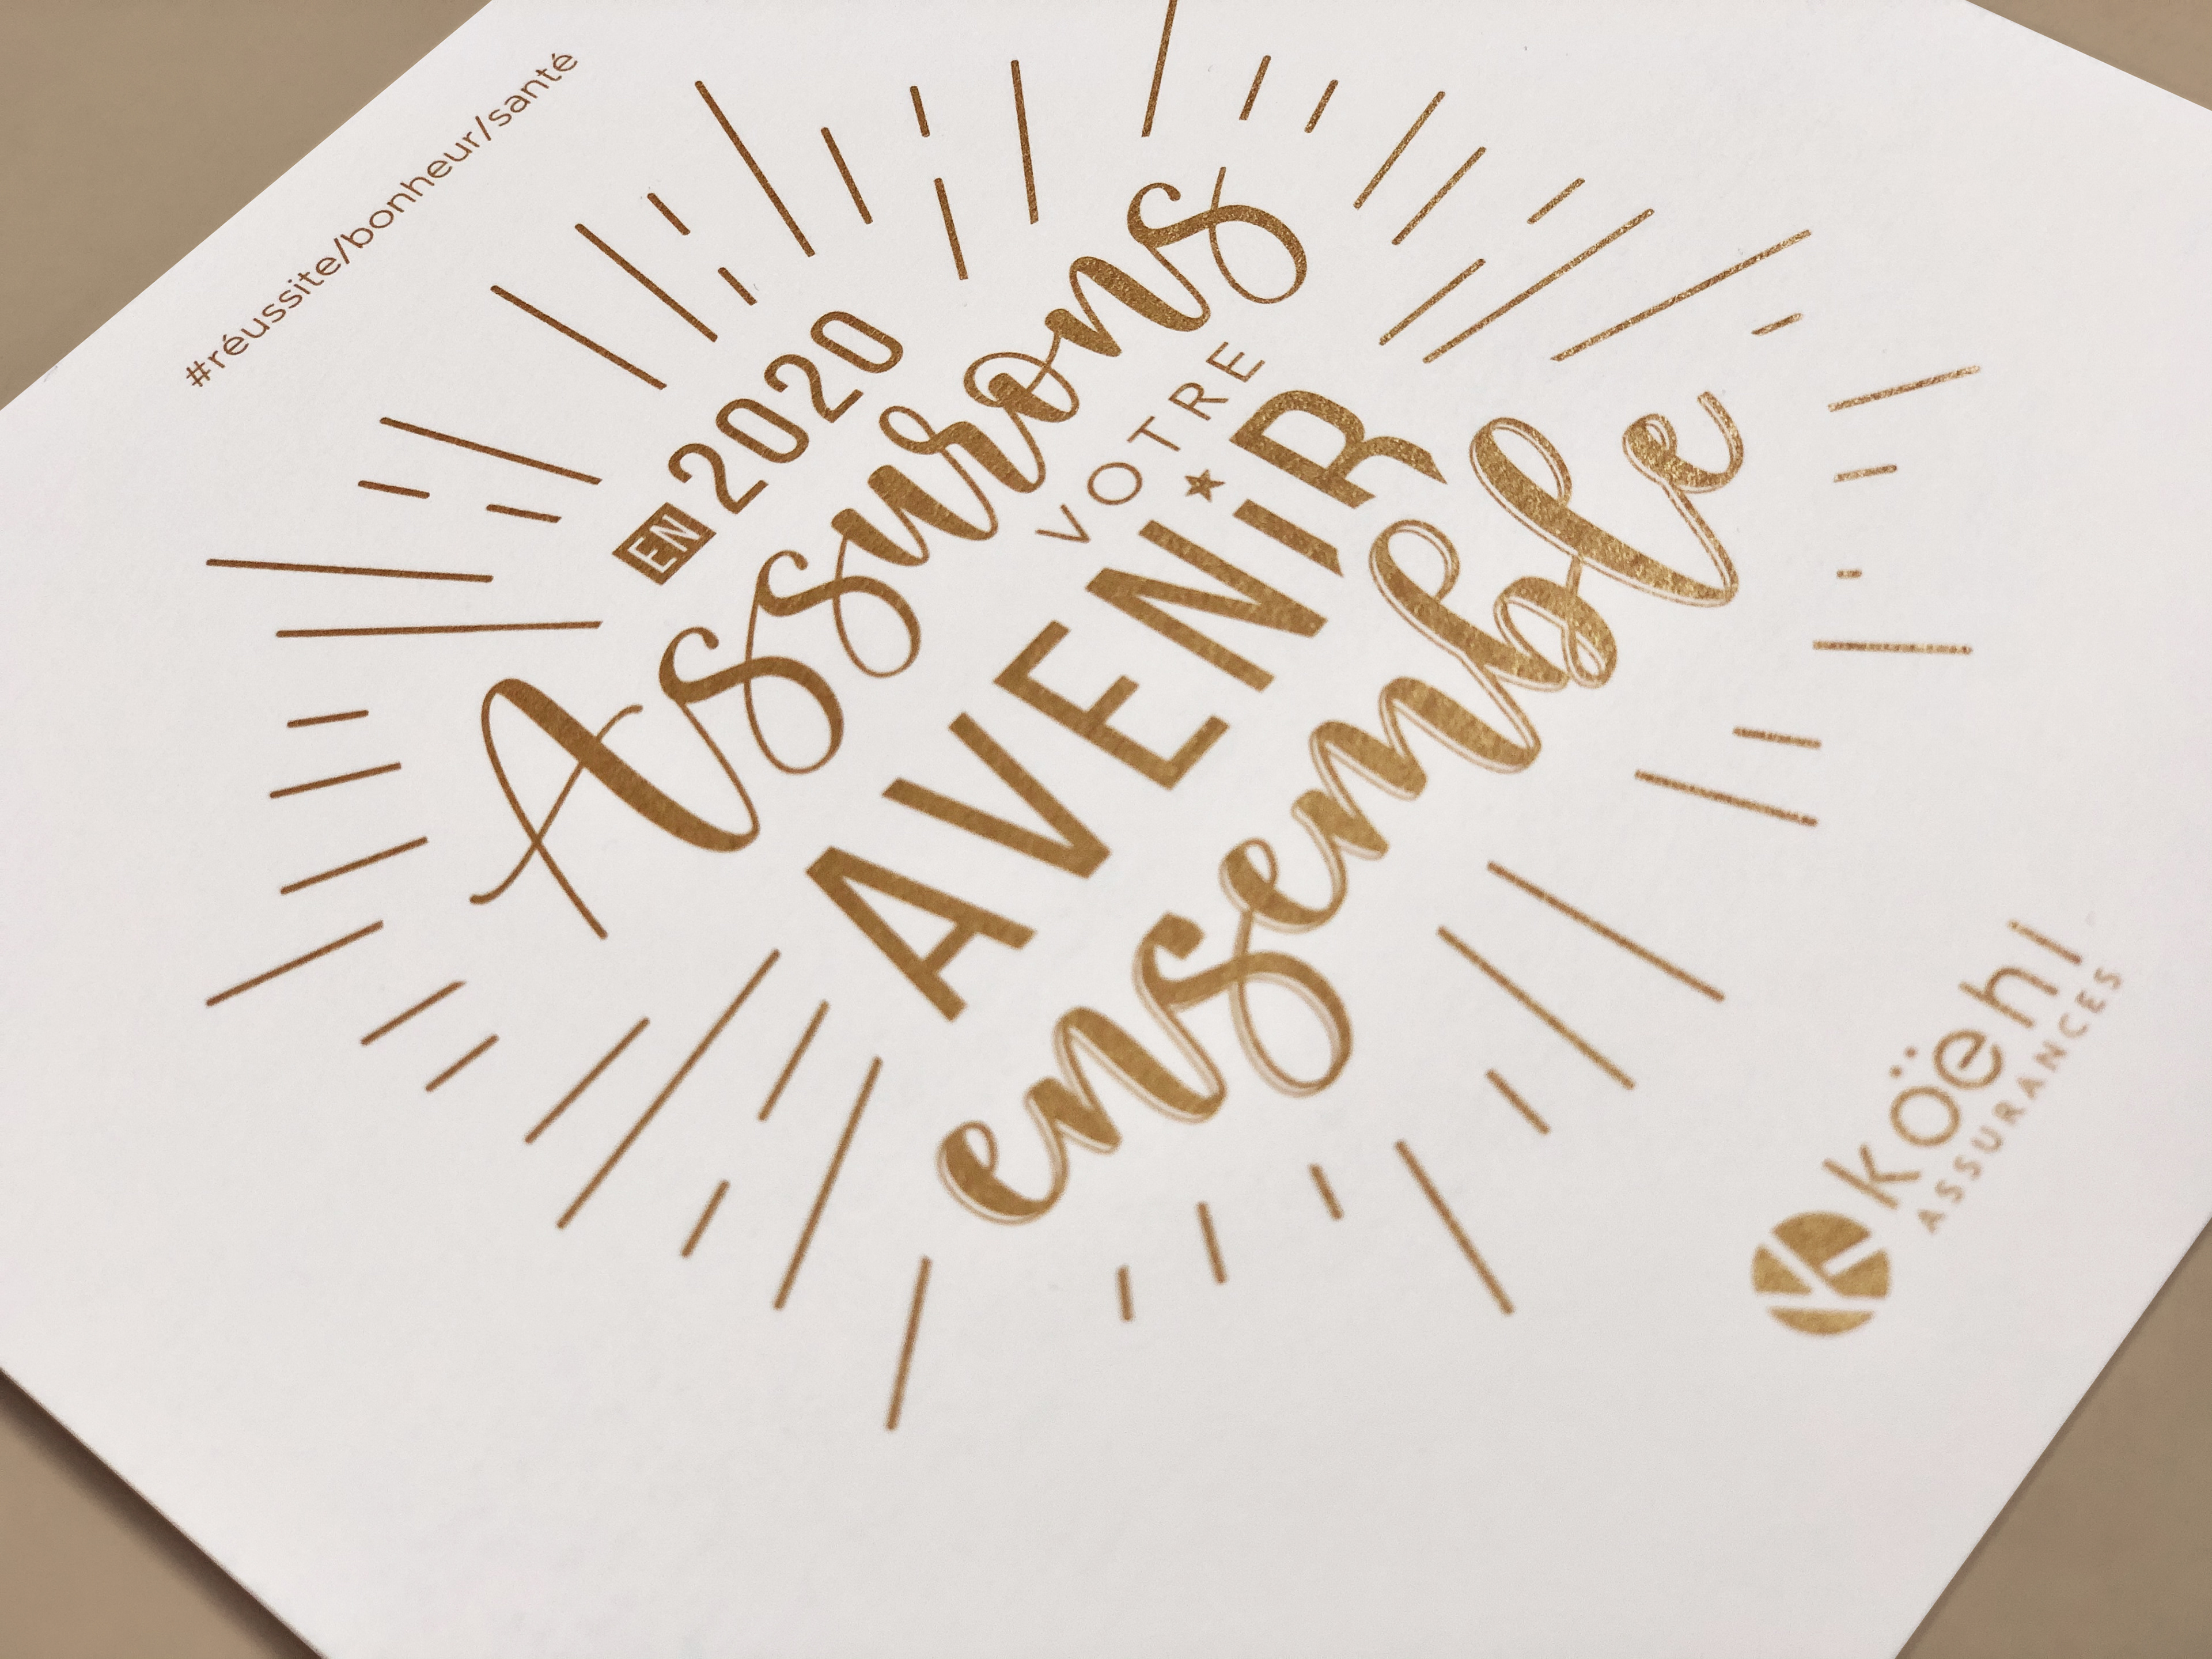 #réussite/bonheur/santé
EN 2020
Assurons
VOTRE
AVENIR
ensemble
köëhl
ASSURANCES